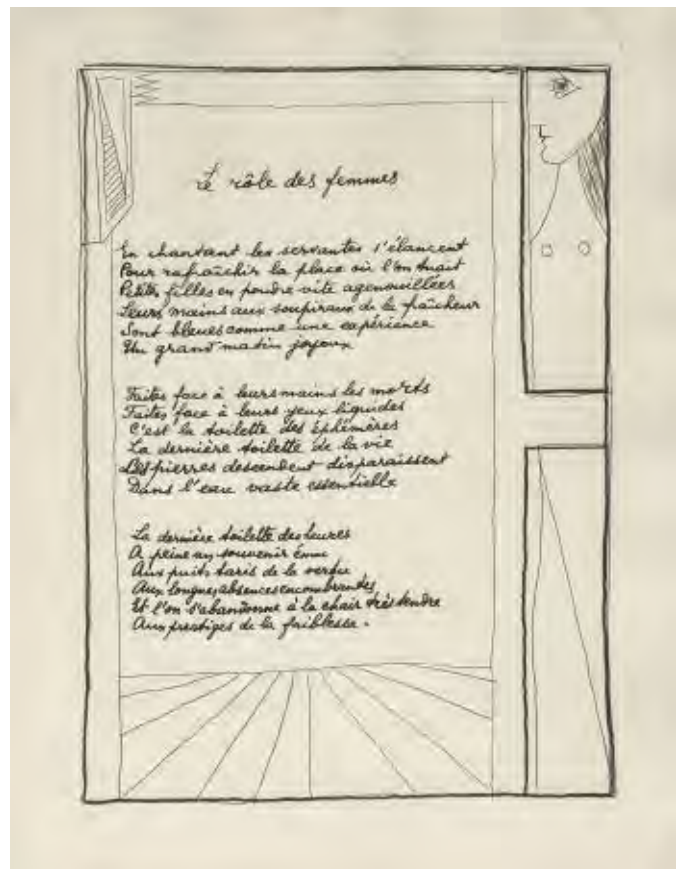 Le rôle des femmes
En chantant les servantes s'élancent
Pour rafraîchir la place où l'on tuait
Petites filles en poudre vite agenouillées
Leurs mains aux soupiraux de la fraîcheur
Sont bleues comme une expérience
Un grand matin joyeux
Faites face à leurs mains les morts
Faites face à leurs yeux liquides
C'est la toilette des éphémères
La dernière toilette de la vie
Les pierres descendent disparaissent
Dans l'eau vaste essentielle
La dernière toilette des heures
A peine un souvenir ému
Aux puits taris de la vertu
Aux longues absences encombrantes
Et l'on s'abandonne à la chair très tendre
Aux prestiges de la faiblesse.